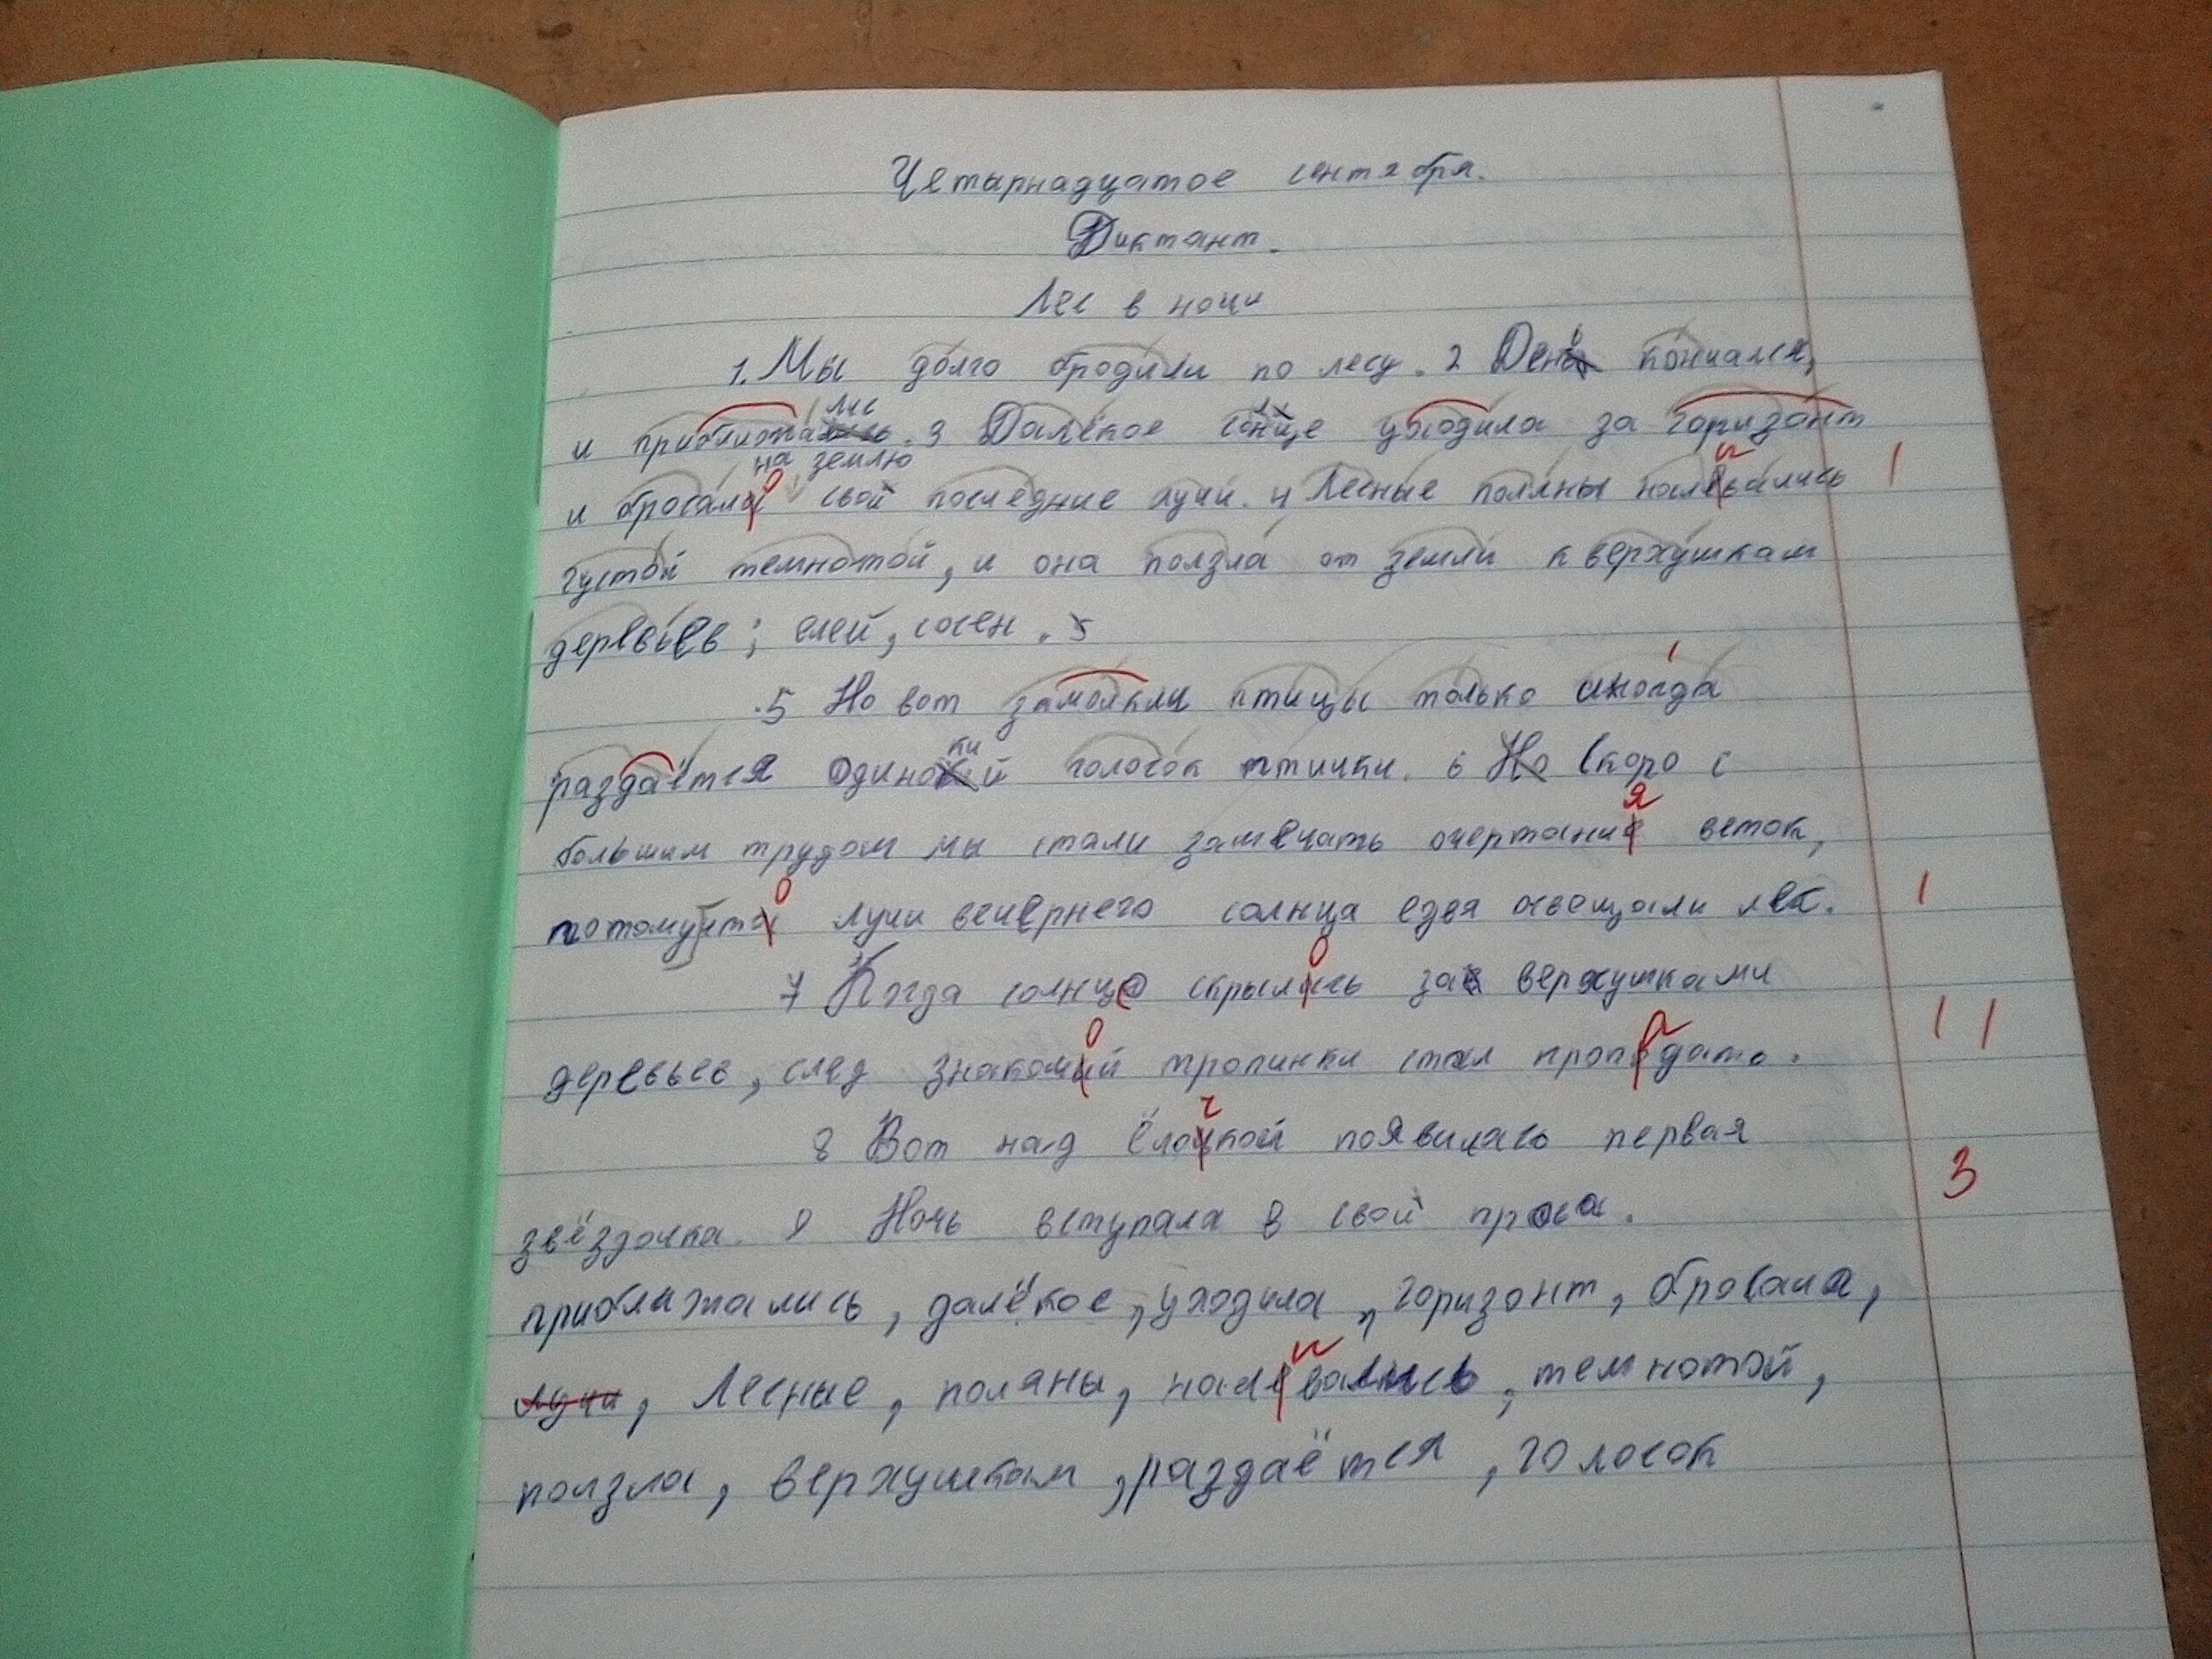 Четырнадцатое сентября.
Диктант.
Лес в ночи
1. Мы долго бродили по лесу. 2 День кончался,
и приближались. 3 Далёкое солнце уходила за горизонт
на землю
и бросала свой последние лучи. 4 Лесные поляны налевались
густой темнотой, и она ползла от земли к верхушкам
деревьев; елей, сосен. 5
5 Но вот замолкли птицы только иногда
раздаётся одинокий голосок птички. 6 Но скоро с
большим трудом мы стали замечать очертание веток,
потомучта лучи вечернего солнца едва освещали лес.
7 Когда солнце скрылась за верхушками
деревьев, след знакомий тропинки стал пропадать.
8 Вот над ёлочкой появилась первая
звёздочка. 9 Ночь вступала в свой права.
приближались, далёкое, уходила, горизонт, бросала,
лучи, Лесные, поляны, налевались, темнотой,
ползла, верхушкам, раздаётся, голосок
1
1
1 1
3